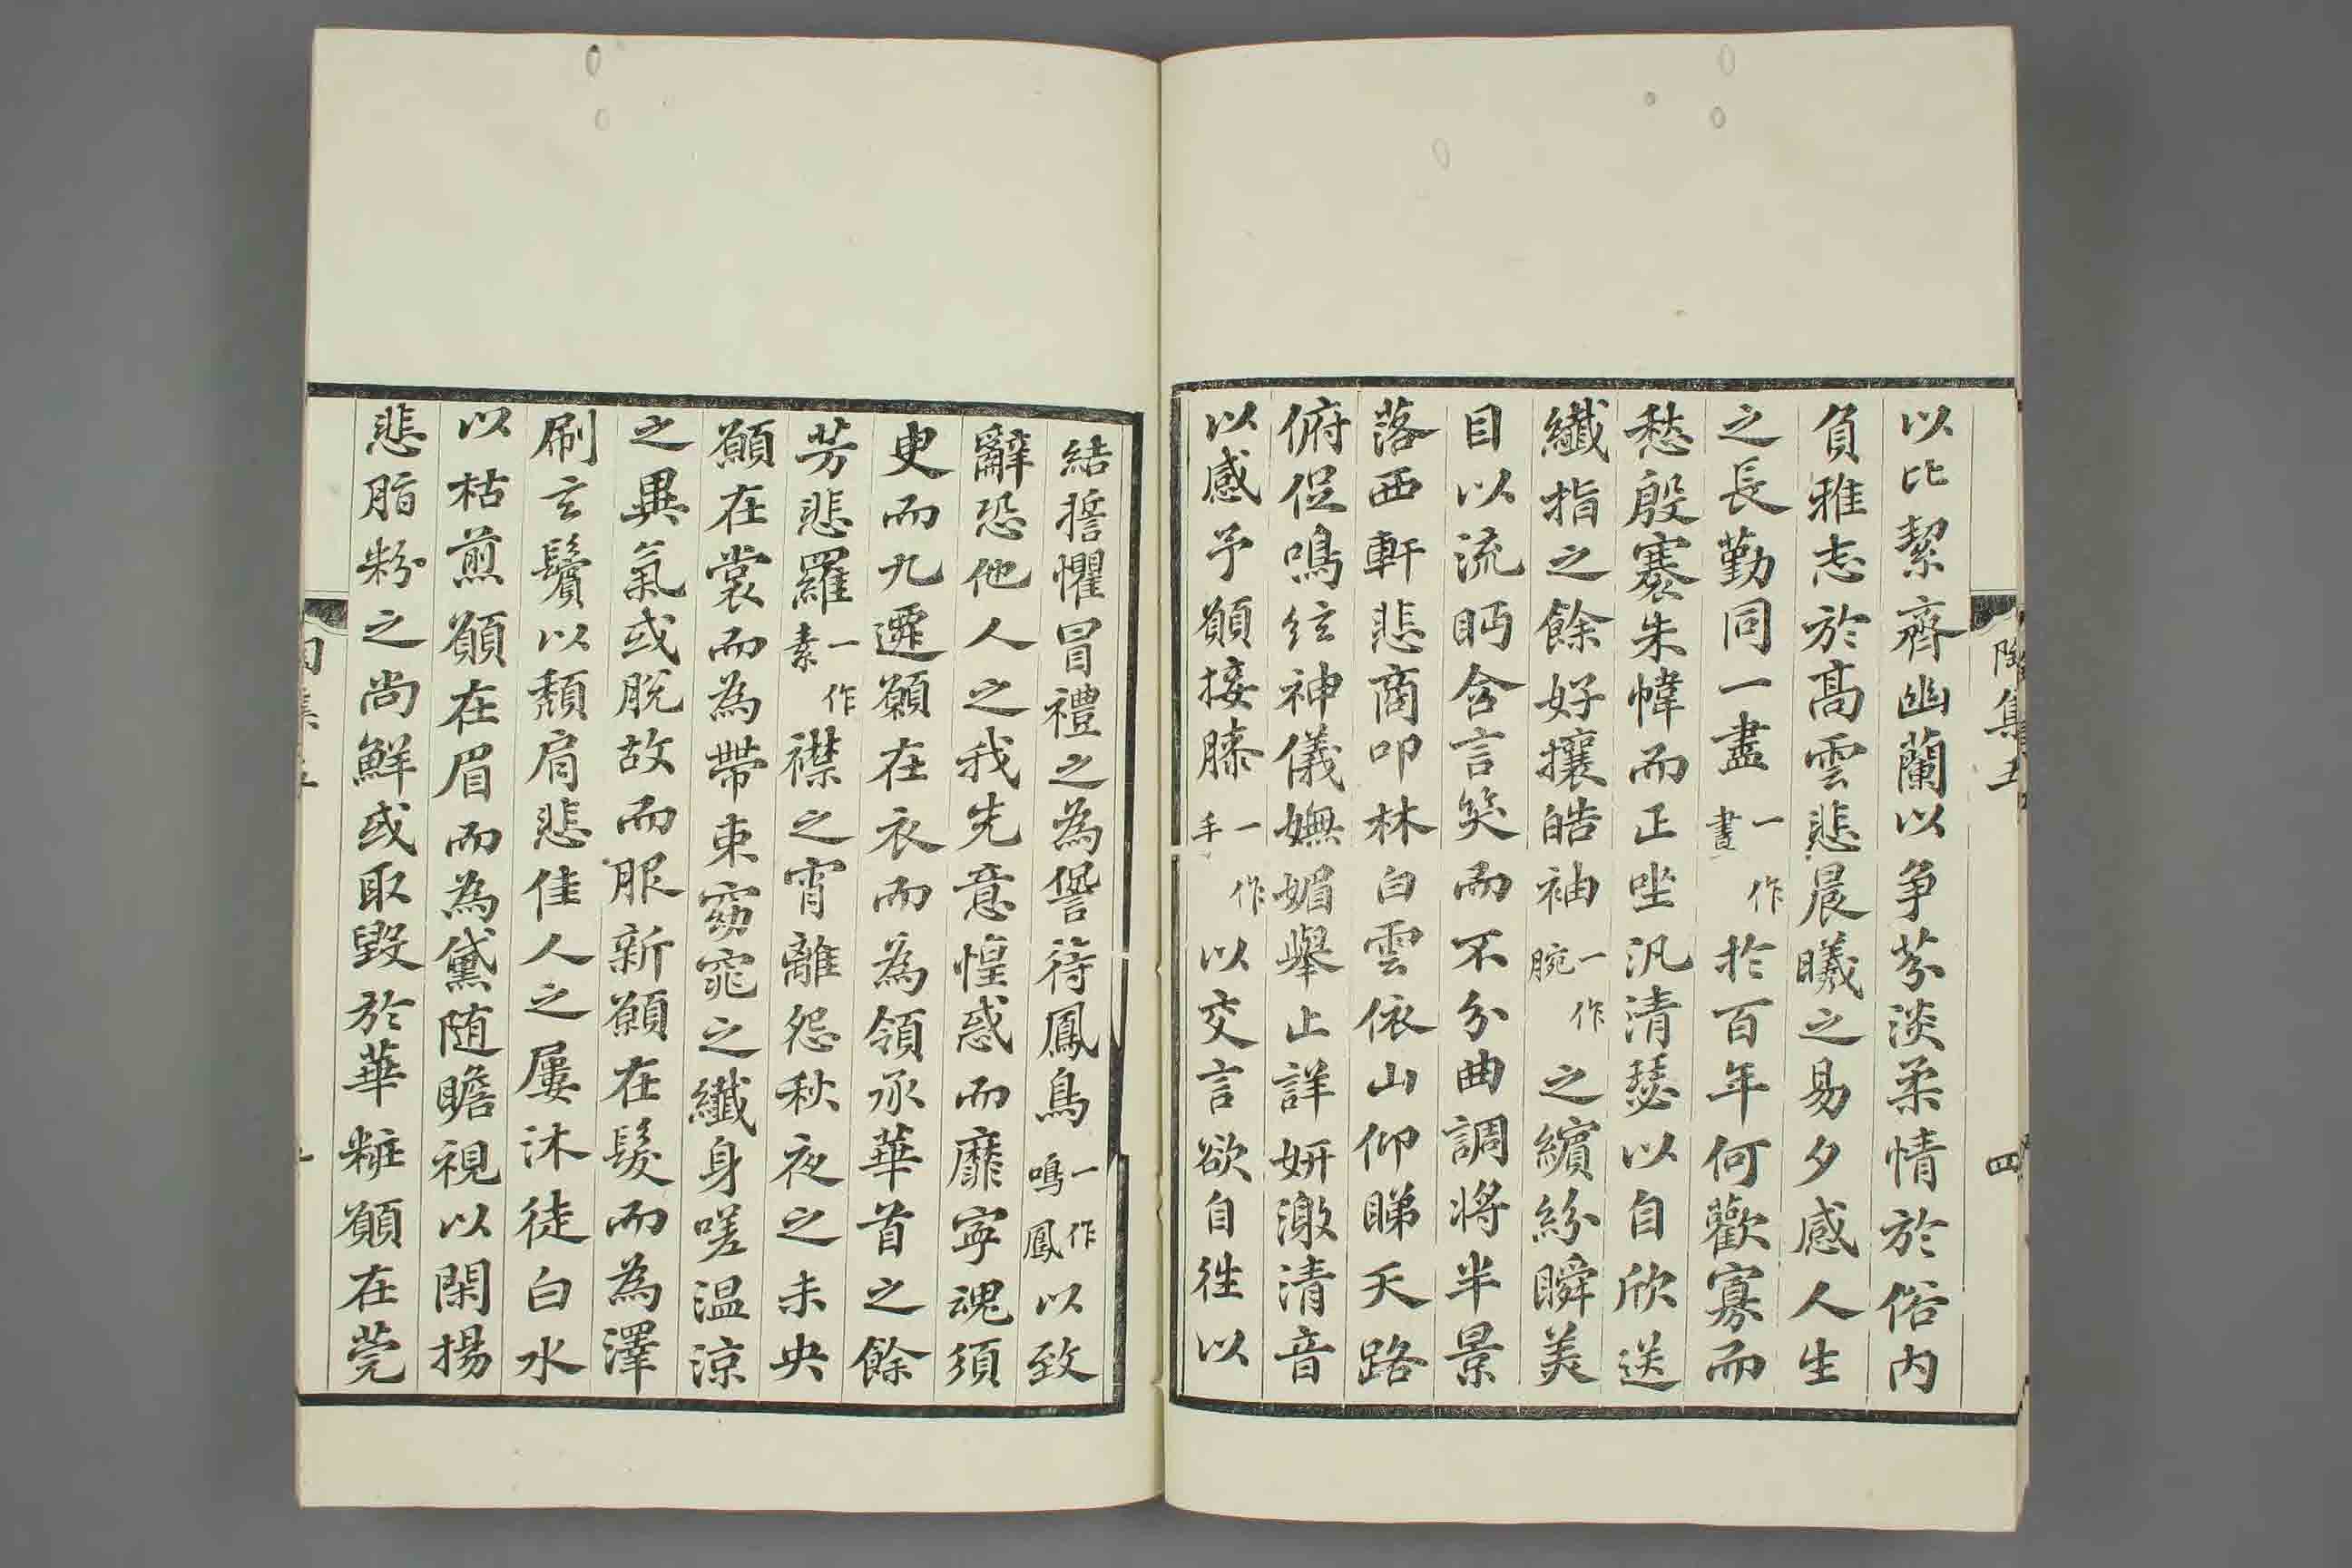 陶集五
四
以比絜齊幽蘭以爭芬淡柔情於俗內
負雅志於高雲悲晨曦之易夕感人生
之長勤同一盡一作晝於百年何歡寡而
愁殷褰朱幃而正坐汎清瑟以自欣送
纖指之餘好攘皓袖一作腕之繽紛瞬美
目以流眄含言笑而不分曲調將半景
落西軒悲商叩林白雲依山仰睇天路
俯促鳴絃神儀嫵媚舉止詳妍激清音
以感予願接膝一作手以交言欲自往以
結誓懼冒禮之為諐待鳳鳥一作鳴鳳以致
辭恐他人之我先意惶惑而靡寧魂須
臾而九遷願在衣而為領承華首之餘
芳悲羅一作素襟之宵離怨秋夜之未央
願在裳而為帶束窈窕之纖身嗟温涼
之異氣或脫故而服新願在髮而為澤
刷玄鬢以頹肩悲佳人之屢沐徒白水
以枯煎願在眉而為黛随瞻視以閑揚
悲脂粉之尚鮮或取毀於華粧願在莞